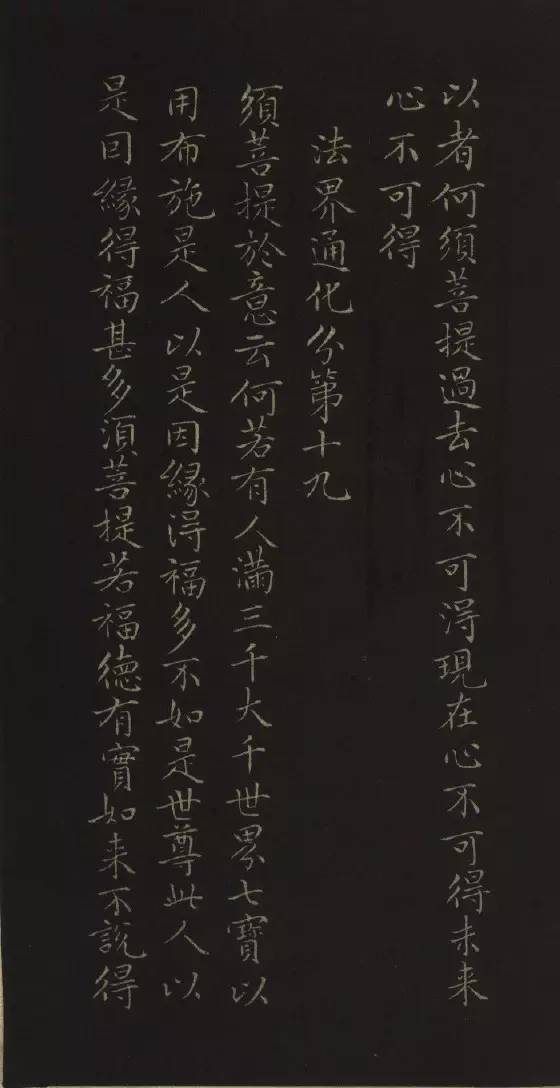 以者何須菩提過去心不可得現在心不可得未来
心不可得
法界通化分第十九
須菩提於意云何若有人滿三千大千世界七寶以
用布施是人以是因緣得福多不如是世尊此人以
是因緣得福甚多須菩提若福德有實如来不說得